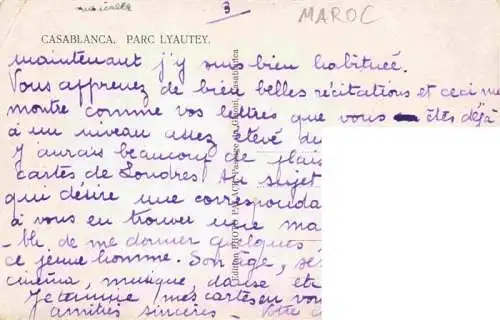 3
MAROC
CASABLANCA. PARC LYAUTEY.
maintenant j'y suis bien habituée.
Vous apprenez de bien belles récitations et ceci me
montre comme vos lettres que vous êtes déjà
à un niveau assez élevé du
J'aurais beaucoup de plais
cartes de Londres Au sujet
qui désire une corresponda
à vous en trouver une ma
-ble de me donner quelques
ce jeune homme. Son âge, se
cinéma, musique, danse etc
Je termine mes cartes en vou
amitiés sincères - Votre c
Edition PHOTO PALACE, Passage du Casablanca